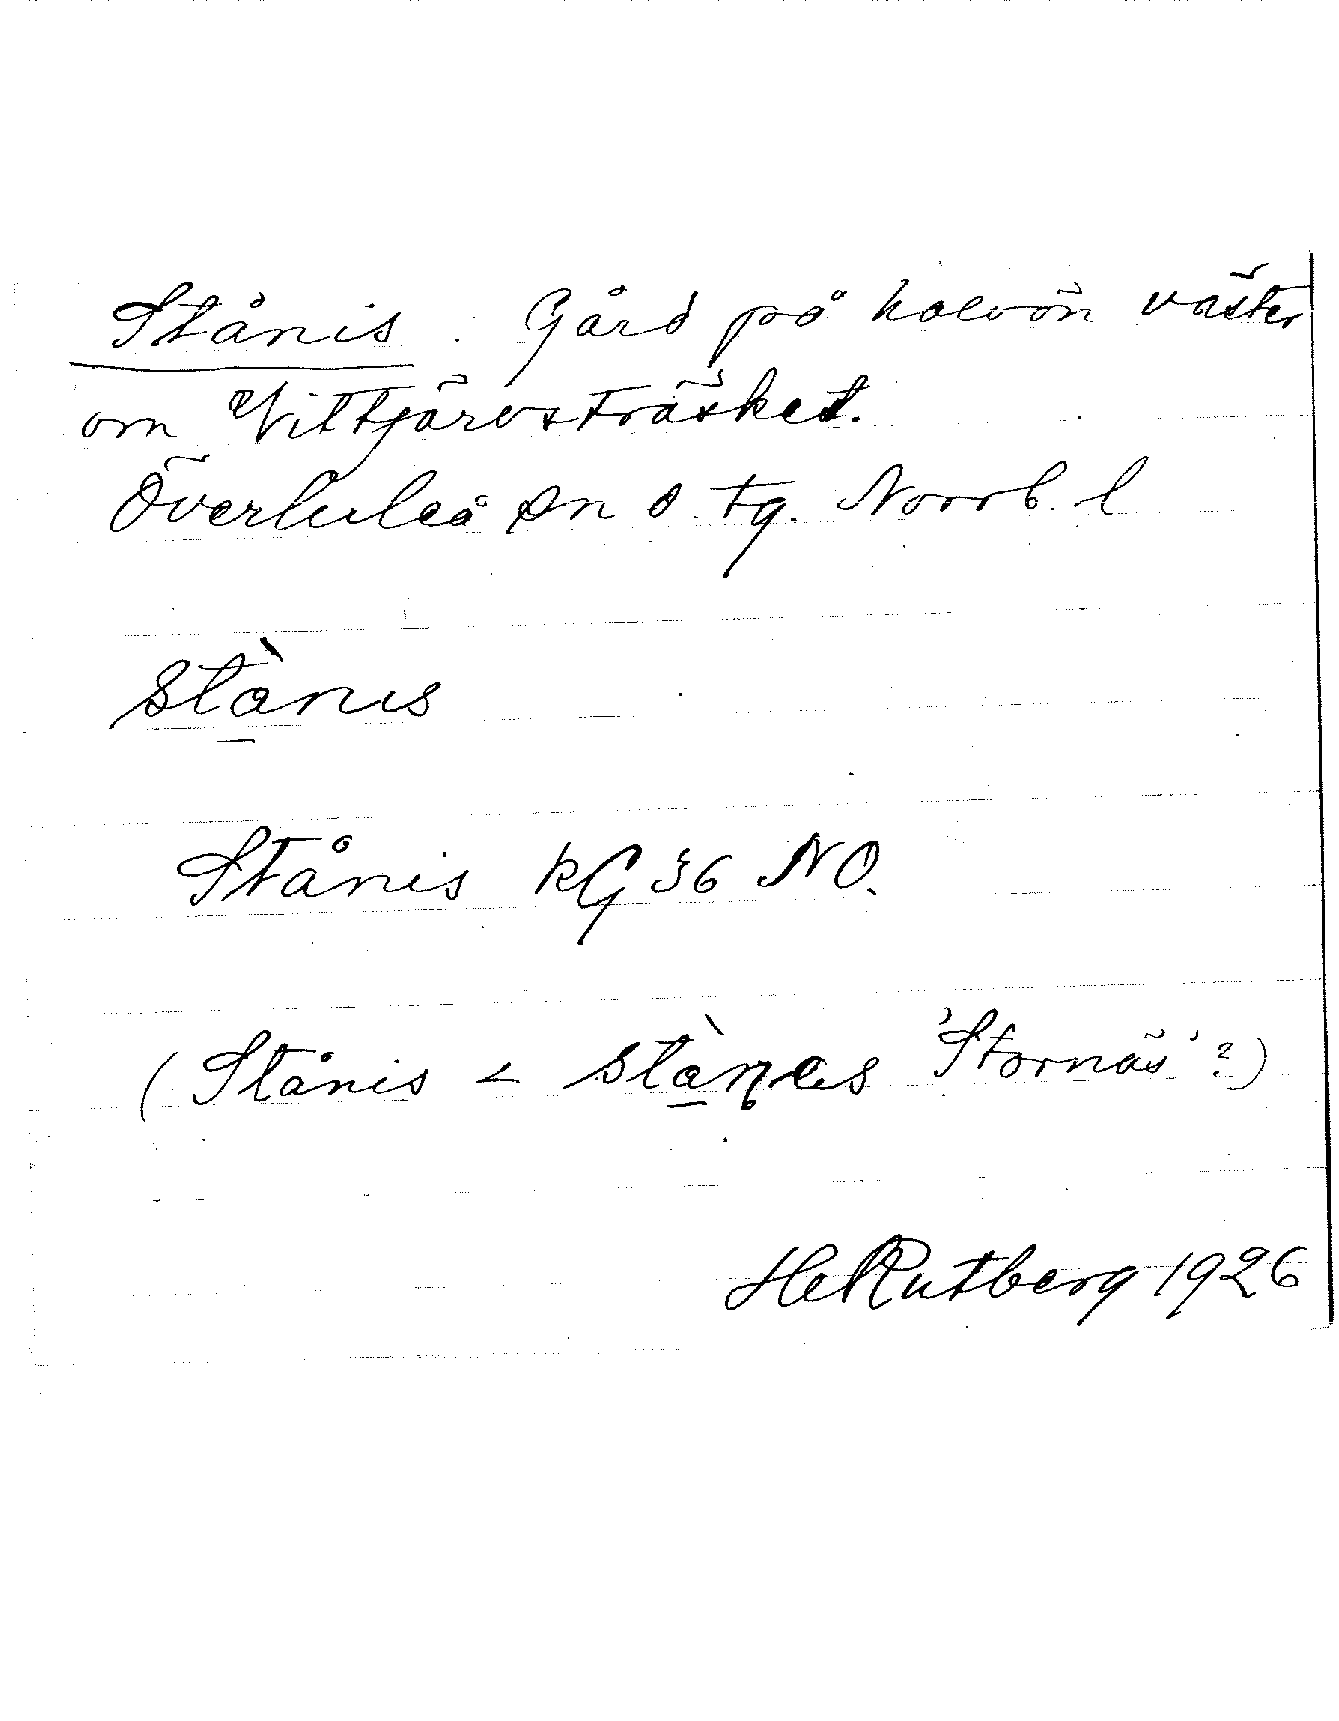 Stånis. Gård på halvön väster
om Vittjärvsträsket.
Överluleå sn o. tg. Norrb. l
stà̱nıs
Stånis KG 36 NO.
(Stånis < stà̱ṇæs 'Stornäs'?)
HelRutberg 1926